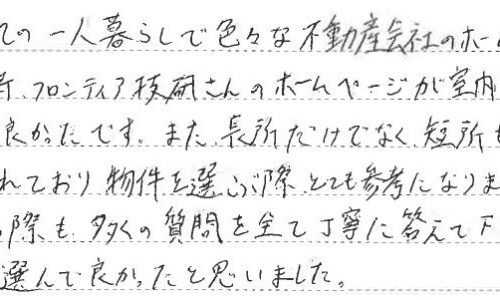 ての一人暮らしで色々な不動産会社のホー
、フロンティア技研さんのホームページが室内
良かったです。また、長所だけでなく、短所も
れており物件を選ぶ際、とても参考になりま
際も、多くの質問を全て丁寧に答えて下
選んで良かったと思いました。